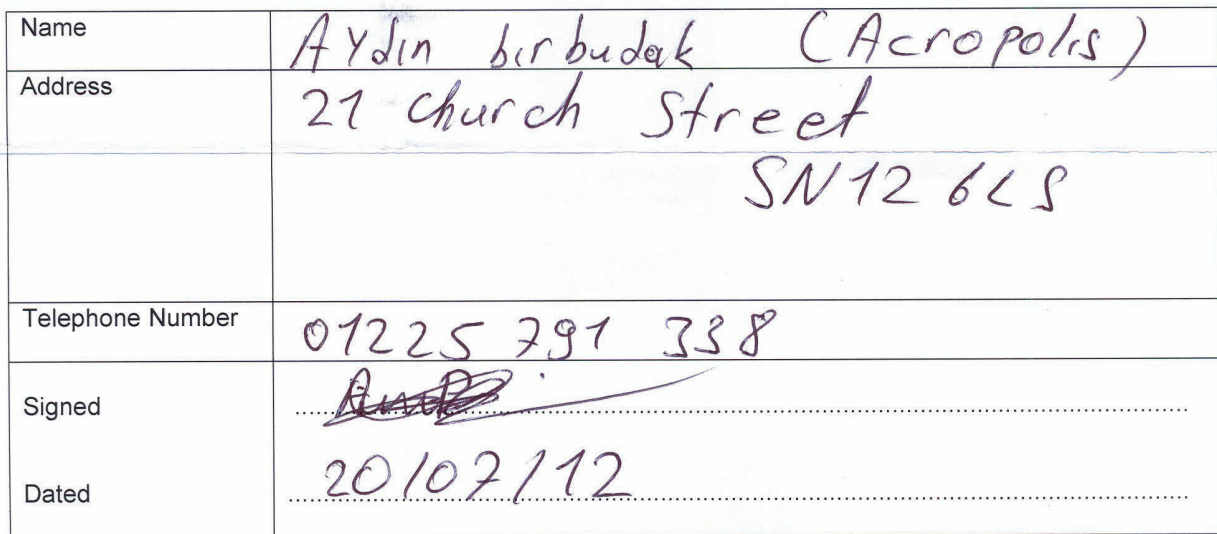 Name AYdın bırbudak (Acropolıs)
Address 21 Church Street
SN12 6LS
Telephone Number 01225 791 338
Signed
Dated 20/07/12